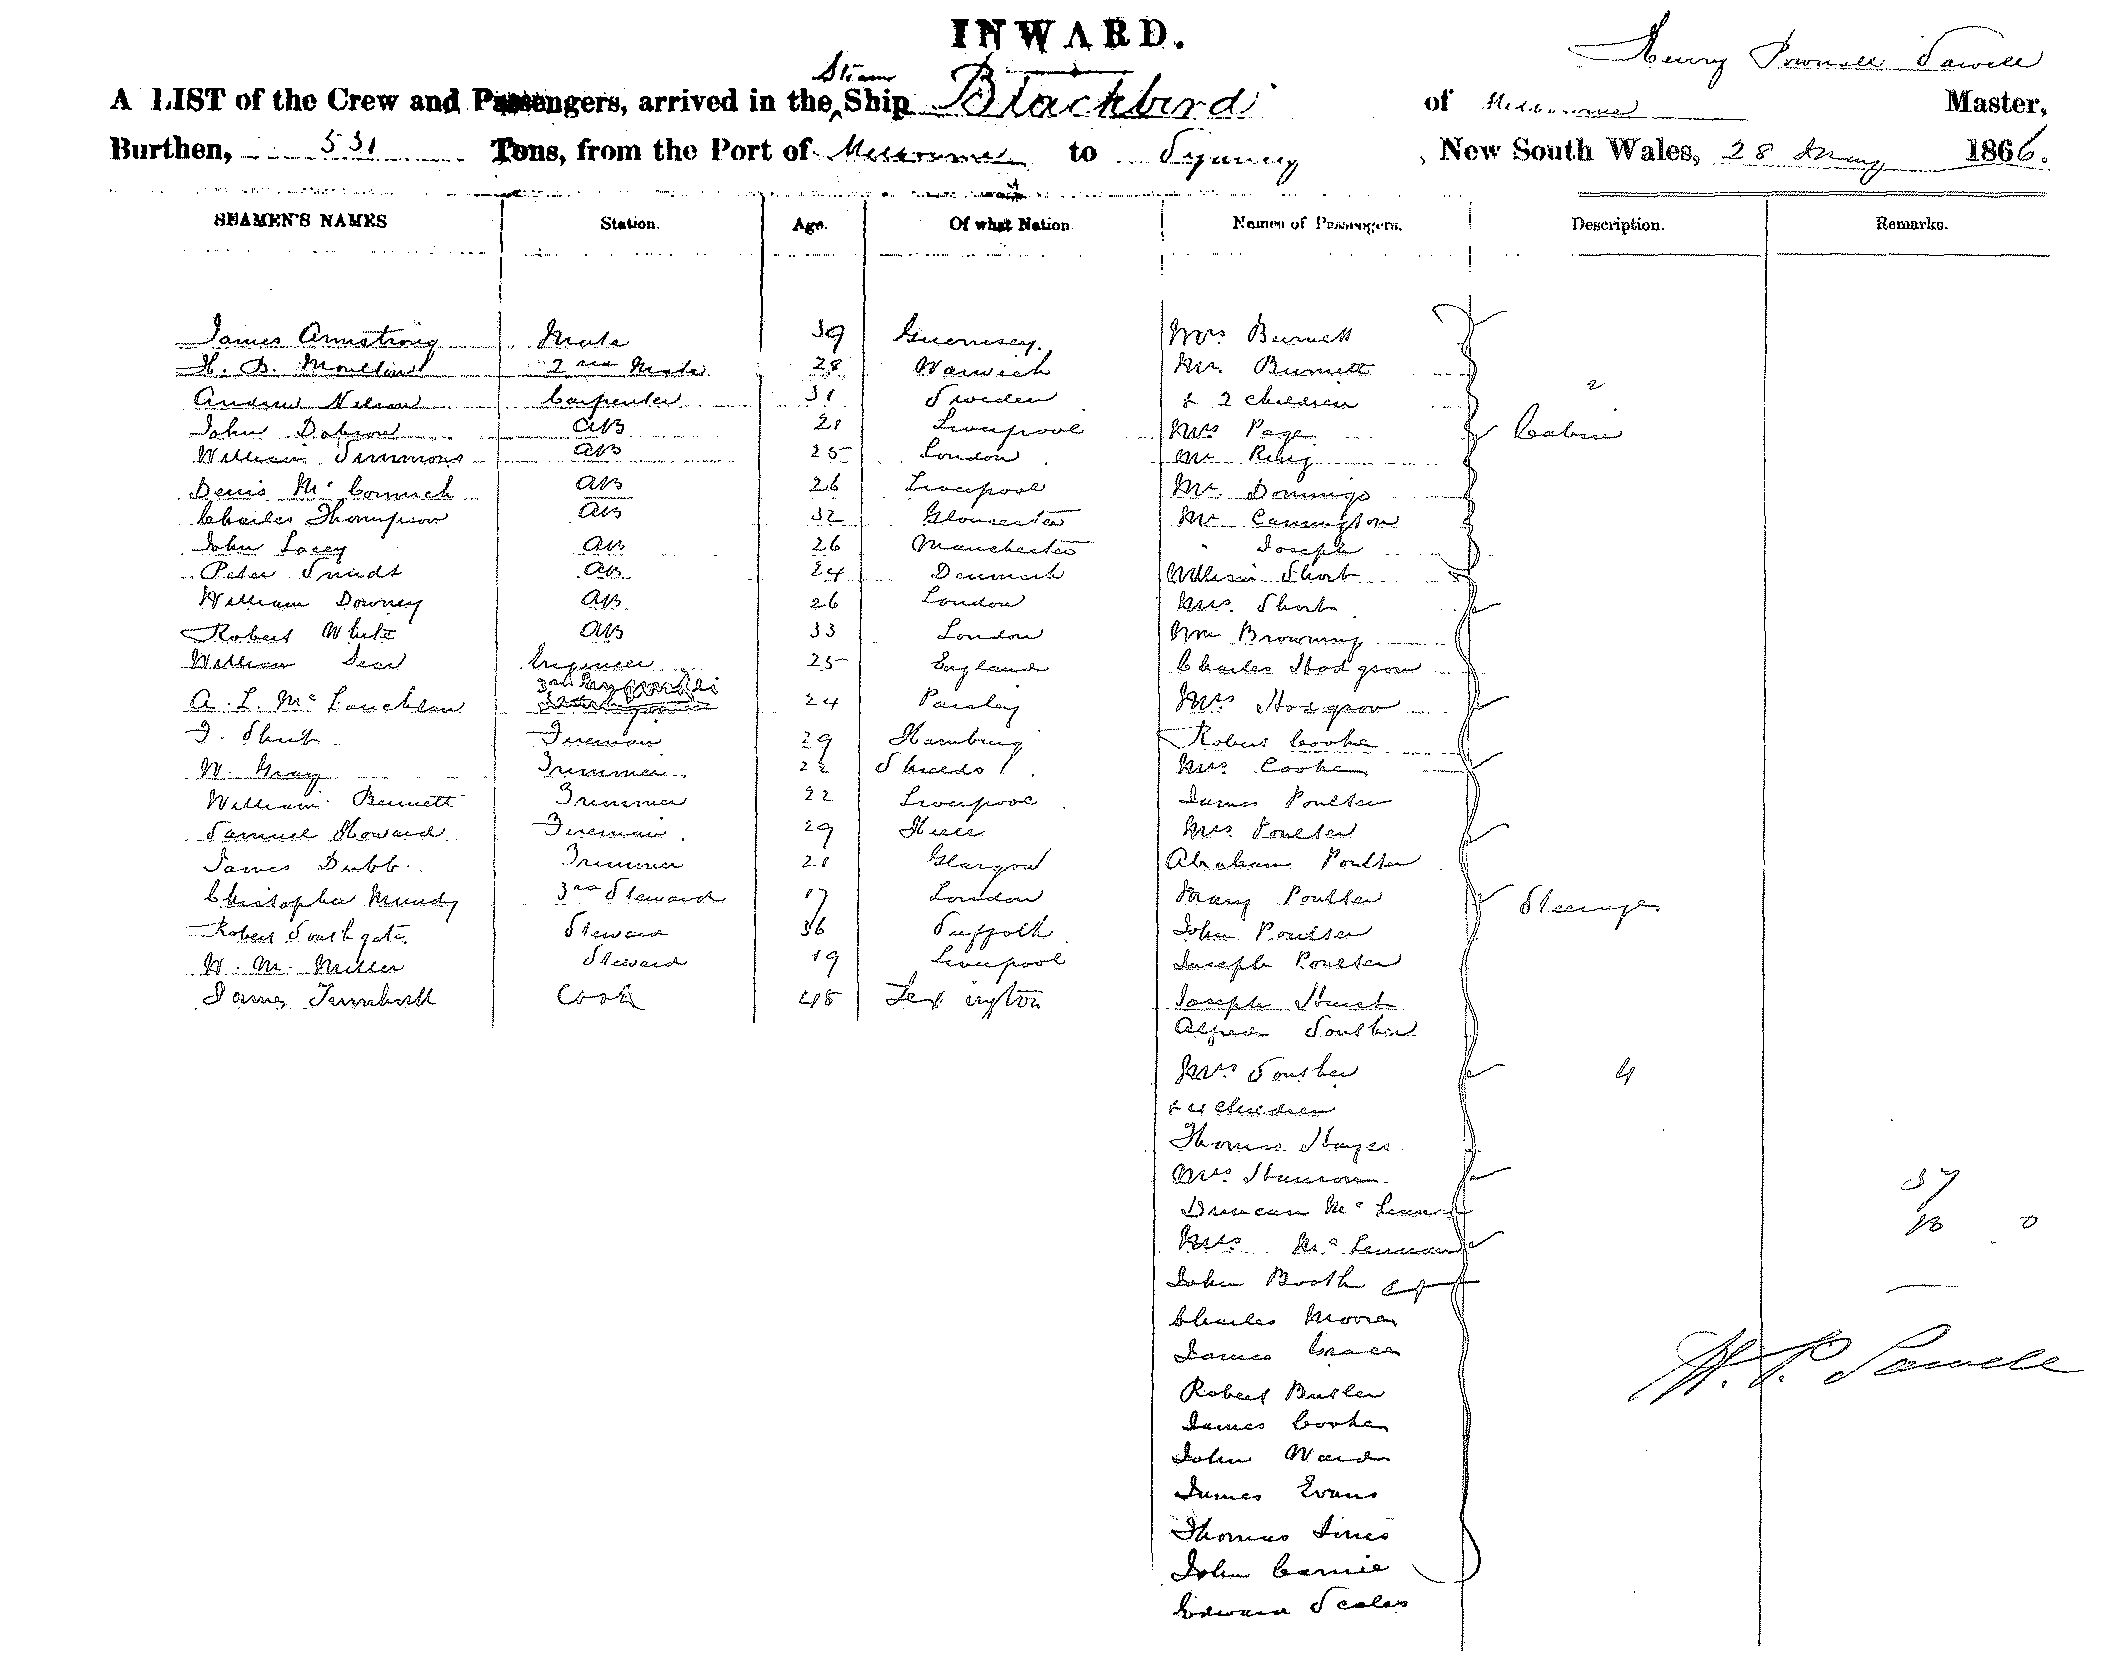 INWARD.
Henry Pownell Sawell
A LIST of the Crew and Passengers, arrived in the Steam Ship Blackbird of Melbourne Master,
Burthen, 531 Tons, from the Port of Melbourne to Sydney, New South Wales, 28 May 1866.
SEAMEN'S NAMES Station. Age. Of what Nation Names of Passengers. Description. Remarks.
James Armstrong Mate 39 Guernsey. Mrs Burnett
H. B. Moulton 2nd Mate 28 Warwick Mr. Burnett
Andrew Nelson Carpenter 31 Sweden & 2 children 2
John Dobson AB 21 Liverpool Mrs Page Cabin
William Simmons AB 25 London Mr King
Denis McCormick AB 26 Liverpool Mr Domingo
Charles Thompson AB 32 Gloucester Mr Cannington
John Lacey AB 26 Manchester " Joseph
Peter Smidt AB 24 Denmark William Short
William Downey AB 26 London Mrs. Short
Robert White AB 33 London Wm Browning
William Dear Engineer 25 England Charles Hodgson
A. L. McLauchlan 3rd 24 Paisley Mrs Hodgson
Fireman 29 Hamburg Robert Cooke
W. Gray Trimmer 22 Shields Mrs Cooke
William Bennett Trimmer 22 Liverpool James Poulter
Samuel Howard Fireman 29 Hull Mrs Poulter
James Dubb Trimmer 21 Glasgow Abraham Poulter
Christopher Mundy 3rd Steward 17 London Mary Poulter Steerage
Robert Southgate Steward 36 Suffolk John Poulter
W. M. Miller Steward 19 Liverpool Joseph Poulter
James Turnbull Cook 45 Lexington Joseph Hurst
Alfred Souther
Mrs Souther 4
& 4 children
Thomas Hayes
Mrs Hanson
Duncan McLennan
Mrs McLennan
John Booth
Charles Moore
James Grace
Robert Butler
James Cooke
John Ward
James Evans
Thomas Sines
John Carnie
Edward Scales
37
0
H. P. Sawell